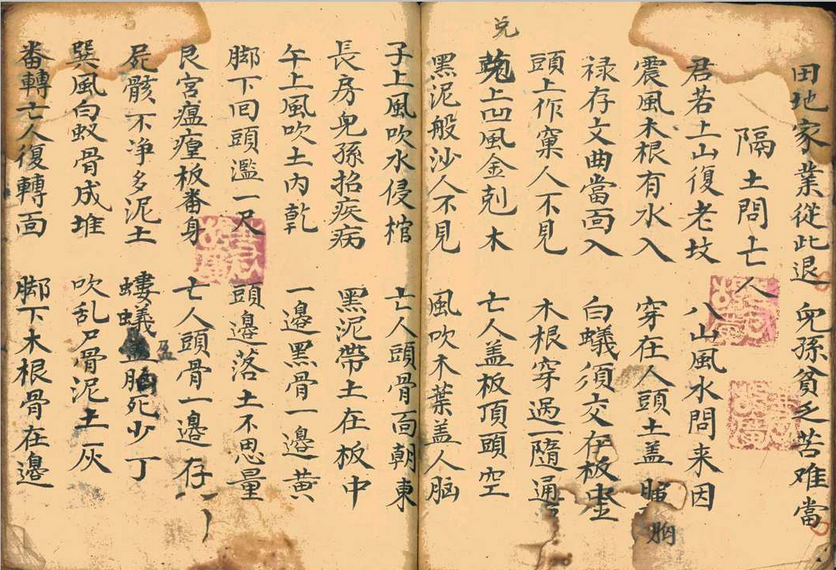 田地家業從此退 兒孫貧乏苦难當
隔土問亡人
君若土山復老坟 八山風水問来因
震風木根有水入 穿在人頭土盖胸
禄存文曲當面入 白蟻須交在板
頭上作窠人不見 木根穿過一隨通
兑上凹風金剋木 亡人盖板頂頭空
黑泥般沙人不見 風吹木葉盖人脑
子上風吹水侵棺 亡人頭骨面朝東
長房兒孫招疾病 黑泥帶土在板中
午上風吹土內乾 一邊黑骨一邊黄
脚下回頭濫一尺 頭邊落土不思量
艮宮瘟𤶊板番身 亡人頭骨一邊存
屍骸不净多泥土 螻蟻 死少丁
巽風白蚁骨成堆 吹乱尸骨泥土灰
番轉亡人復轉面 脚下木根骨在邊